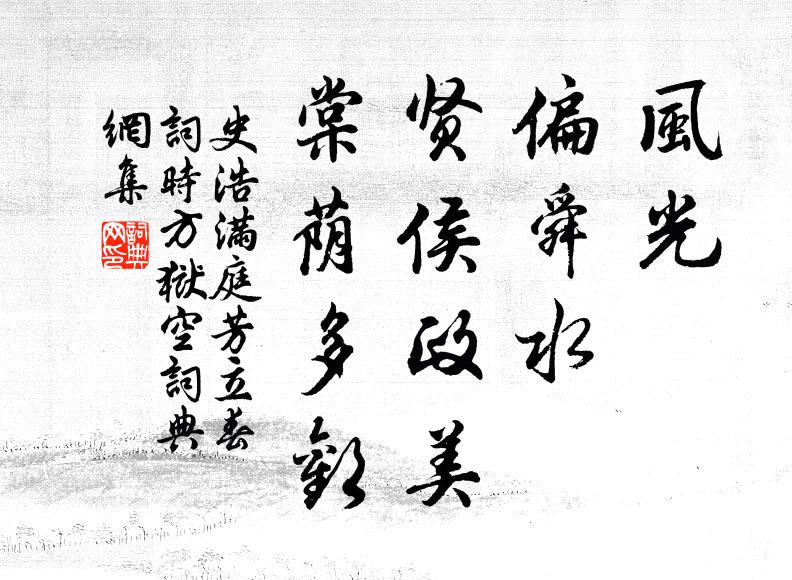 風光
偏舜水
贤侯政美
棠荫多歡
史浩滿庭芳立春
詞時方獄空詞典
網集
詞典
网印